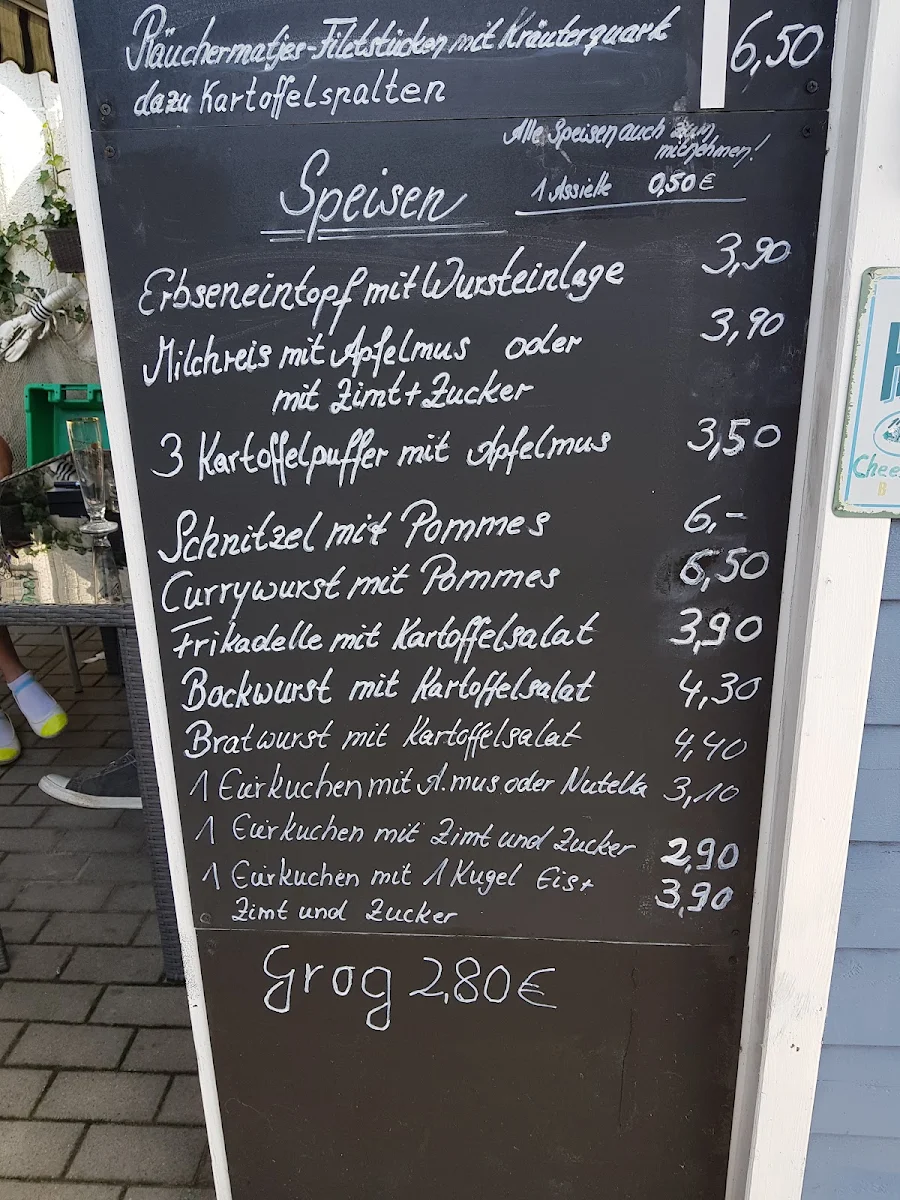 Räuchermatjes-Filetstücken mit Kräuterquark 6,50
dazu Kartoffelspalten
Alle Speisen auch zum
mitnehmen!
1 Assiette 0,50€
Speisen
Erbseneintopf mit Wursteinlage 3,90
Milchreis mit Apfelmus oder 3,90
mit Zimt + Zucker
3 Kartoffelpuffer mit Apfelmus 3,50
Schnitzel mit Pommes 6,-
Currywurst mit Pommes 6,50
Frikadelle mit Kartoffelsalat 3,90
Bockwurst mit Kartoffelsalat 4,30
Bratwurst mit Kartoffelsalat 4,40
1 Eierkuchen mit A.mus oder Nutella 3,10
1 Eierkuchen mit Zimt und Zucker 2,90
1 Eierkuchen mit 1 Kugel Eis + 3,90
Zimt und Zucker
Grog 2,80€
Chee